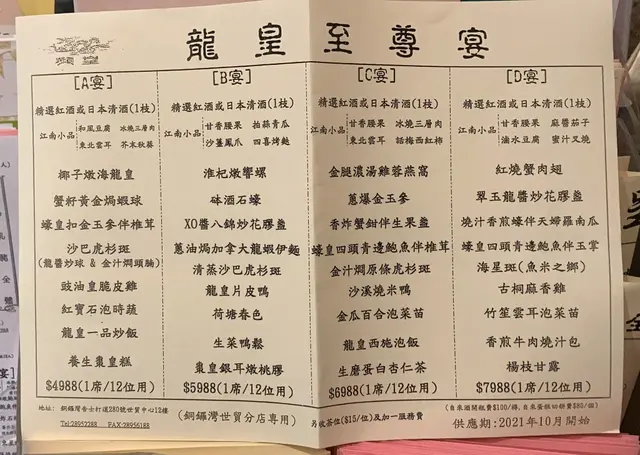 龍皇
龍皇至尊宴
[A宴]
精選紅酒或日本清酒(1枝)
江南小品
和風豆腐 冰燒三層肉
東北雲耳 芥末秋葵
椰子燉海龍皇
蟹籽黃金焗蝦球
蠔皇扣金玉參伴椎茸
沙巴虎杉斑
(龍醬炒球 & 金汁燜頭腩)
豉油皇脆皮雞
紅寶石泡時蔬
龍皇一品炒飯
養生棗皇糕
$4988(1席/12位用)
[B宴]
精選紅酒或日本清酒(1枝)
江南小品
甘香腰果 拍蒜青瓜
沙薑鳳爪 四喜烤麩
淮杞燉響螺
砵酒石蠔
XO醬八錦炒花膠盞
蔥油焗加拿大龍蝦伊麵
清蒸沙巴虎杉斑
龍皇片皮鴨
荷塘春色
生菜鴨鬆
棗皇銀耳燉桃膠
$5988(1席/12位用)
[C宴]
精選紅酒或日本清酒(1枝)
江南小品
甘香腰果 冰燒三層肉
東北雲耳 話梅西紅柿
金腿濃湯雞蓉燕窩
蔥爆金玉參
香炸蟹鉗伴生果盞
蠔皇四頭青邊鮑魚伴椎茸
金汁燜原條虎杉斑
沙溪燒米鴨
金瓜百合泡菜苗
龍皇西施泡飯
生磨蛋白杏仁茶
$6988(1席/12位用)
[D宴]
精選紅酒或日本清酒(1枝)
江南小品
甘香腰果 麻醬茄子
滷水豆腐 蜜汁叉燒
紅燒蟹肉翅
翠玉龍醬炒花膠盞
燒汁香煎蠔伴天婦羅南瓜
蠔皇四頭青邊鮑魚伴玉掌
海星斑(魚米之鄉)
古桐麻香雞
竹笙雲耳泡菜苗
香煎牛肉燒汁包
楊枝甘露
$7988(1席/12位用)
地址: 銅鑼灣告士打道280號世貿中心12樓
Tel:28952288 FAX:28956188
(銅鑼灣世貿分店專用)
另收茶位($15/位)及加一服務費
(自來酒開瓶費$100/樽, 自來蛋糕切餅費$80/個)
供應期:2021年10月開始